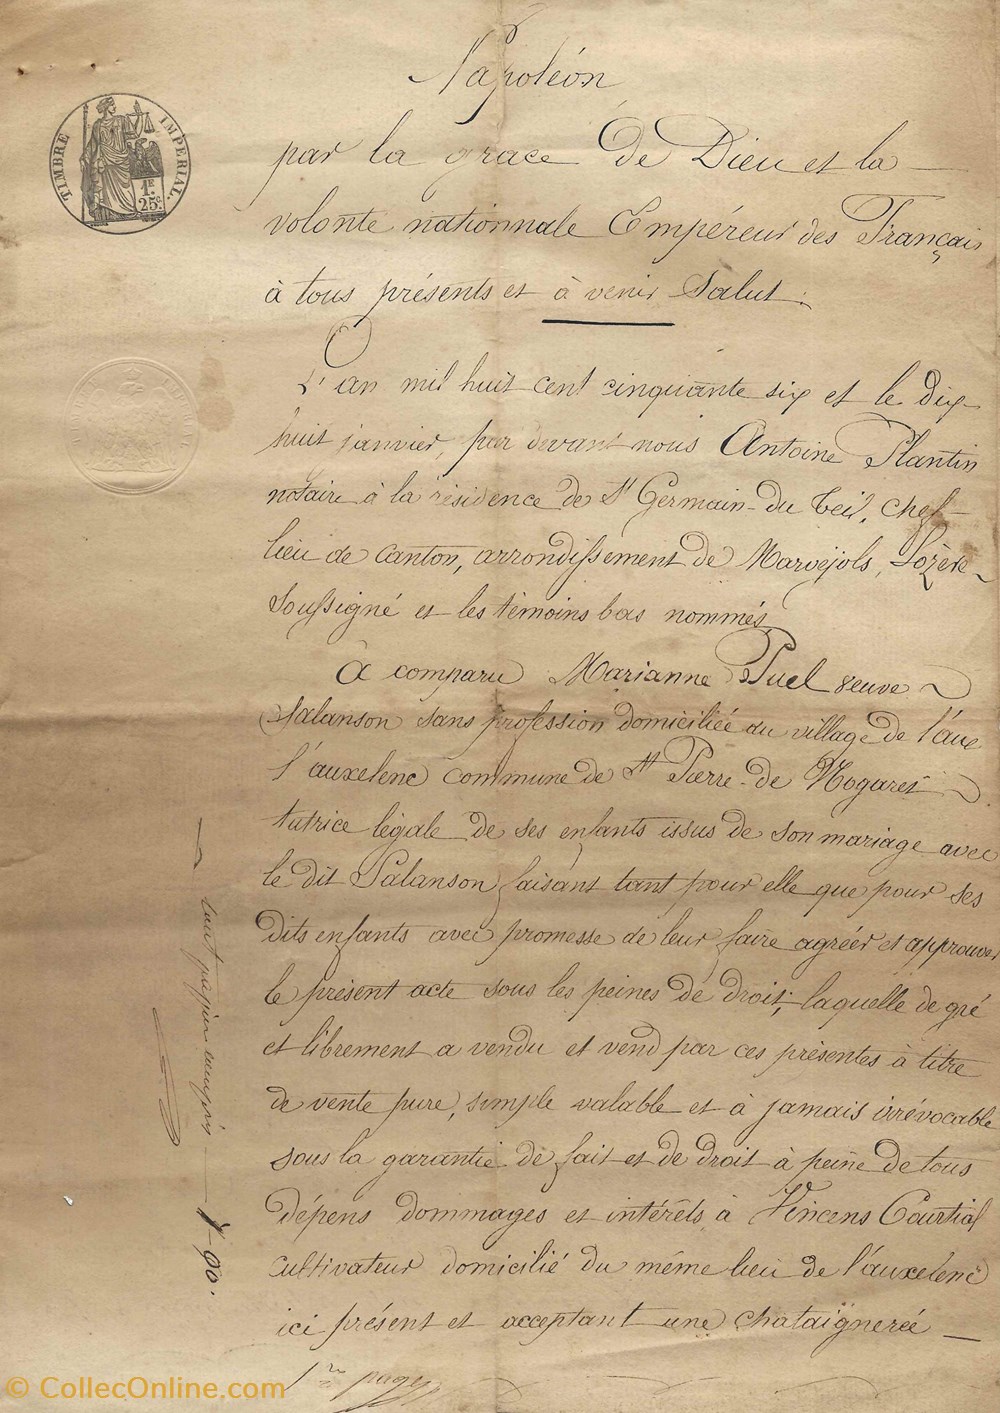 Napoléon
par la grace de Dieu et la
volonte nationnale Empéreur des Français
à tous présents et à venir Salut.
TIMBRE IMPERIAL.
1F. 25c.
L'an mil huit cent cinquante six et le dix
huit janvier, par devant nous Antoine Plantin
notaire à la résidence de St Germain-du Teil, chef-
lieu de canton, arrondissement de Marvéjols, Lozère
soussigné et les témoins bas nommés
A comparu Marianne Puel veuve
Salanson sans profession domiciliée au village de l'aux
l'auxelenc commune de St Pierre-de Nogaret
tutrice légale de ses enfants issus de son mariage avec
le dit Salanson faisant tant pour elle que pour ses
dits enfants avec promesse de leur faire agréer et approuver
le présent acte sous les peines de droit; laquelle de gré
et librement a vendu et vend par ces présentes à titre
de vente pure, simple valable et à jamais irrévocable
sous la garantie de fait et de droit à peine de tous
dépens dommages et intérêts à Vincens Courtial
cultivateur domicilié du même lieu de l'auxelenc
ici présent et acceptant une chataigneréé
1re page
papier compris
90.
© CollecOnline.com